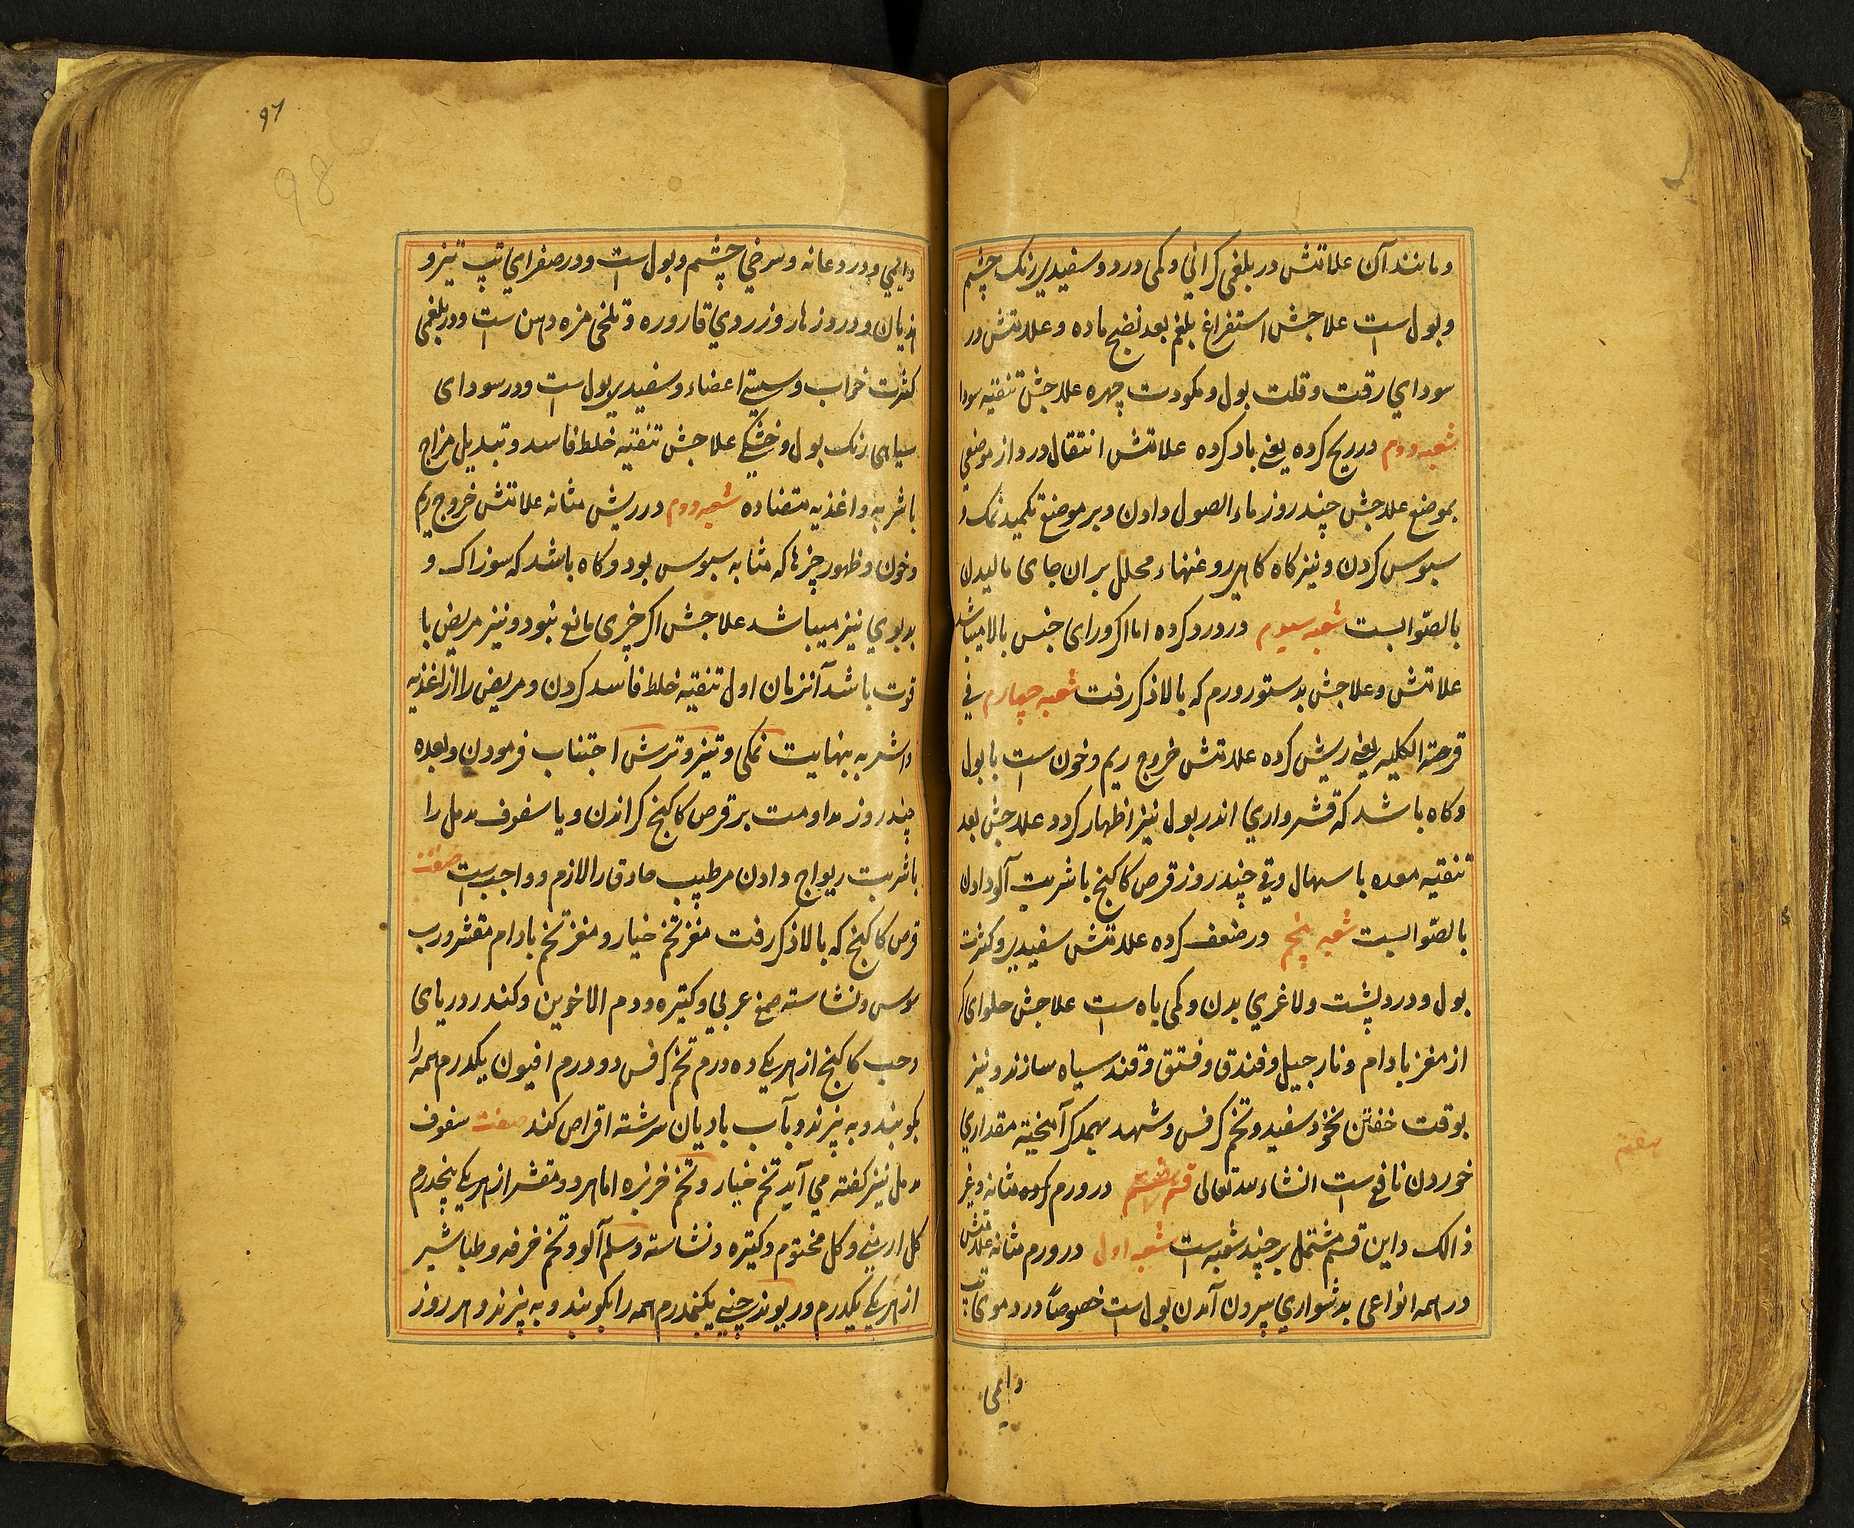 و مانند آن علاتش در بلغمی کرانی و کمی درد و سفیدی رنک چشم
و بول است علاجش استفراغ بلغم بعد نضج ماده و علامتش در
سودای رقت و قلت بول و کمودت چهره علاجش تنقیه سودا
شعبه دوم در ریح کرده یعنی باد کرده علامتش انتقال درد از موضعی
بموضع علاجش چند روز ماء الصول دادن و بر موضع تکمید نمک و
سبوس کردن و نیز کاه کاهی روغنهاء محلل بر ان جای مالیدن
بالصوابست شعبه سیوم در درد کرده اما اکر ورای جنس بالا میباشد
علاتش و علاجش بدستور ورم که بالا ذکر رفت شعبه چهارم فی
قرحة الکلیه یعنی ریش کرده علامتش خروج ریم و خون است با بول
و کاه باشد که قشرواری اندر بول نیز اظهار کردد علاجش بعد
تنقیه معده با سهال و قی چند روز قرص کاکنج با شربت آلو دادن
بالصوابست شعبه پنجم در ضعف کرده علامتش سفیدی و کثرت
بول و درد پشت و لاغری بدن و کمی باه است علاجش حلوای کر
از مغز بادام و نارجیل و فندق و فستق و قند سیاه سازند و نیز
بوقت خفتن نخود سفید و تخم کرفس و شهد بهمدکر آمیخته مقداری
خوردن نافع است انشاء الله تعالی قسم هفتم در ورم کرده مثانه و غیر
ذالک و این قسم مشتمل بر چند شعبه است شعبه اول در ورم مثانه علامتش
در همه انواعی بدشواری بیرون آمدن بول است خصوصاً در دموی تپ
دایمی
هفتم
97
98
دایمی و درد عانه و سرخی چشم و بول است و در صفرای تپ تیز و
هذیان و درد زهار و زردی قاروره و تلخی مزه دهن است و در بلغمی
کثرت خواب و سستی اعضاء و سفیدی بول است و در سودای
سیاهی رنک بول و خشکی علاجش تنقیه خلط فاسد و تبدیل مزاج
باشربه و اغذیه متضاده شعبه دوم در ریش مثانه علاتش خروج ریم
و خون و ظهور چیزها که مشابه سبوس بود و کاه باشد که سوزاک و
بدبوی نیز میباشد علاجش اکر چیزی مانع نبود و نیز مریض با
قوت باشد آنزمان اول تنقیه خلط فاسد کردن و مریض را از اغذیه
و اشربه بنهایت نمکی و تیز و ترش اجتناب فرمودن و بعده
چند روز مداومت بر قرص کاکنج کراندن و یا سفوف مدمل را
باشربت ریواج دادن مر طبیب حاذق را لازم و واجب است صفت
قرص کاکنج که بالا ذکر رفت مغز تخم خیار و مغز تخم بادام مقشر و رب
سوس و نشاسته صمغ عربی و کتیره و دم الاخوین و کندر دریای
و حب کاکنج از هر یکی ده درم تخم کرفس دو درم افیون یکدرم همه را
بکوبند و به پزند و بآب بادیان سرشته اقراص کند صفت سفوف
مدمل نیز کفته می آید تخم خیار و تخم خربزه اما هر دو مقشر از هر یکی پنجدرم
کل ارمنی و کل مختوم و کتیره و نشاسته و سلم آلو و تخم خرفه و طباشیر
از هر یکی یکدرم و ریوند چینی یکنیمدرم همه را بکوبند و به پزند و هر روز